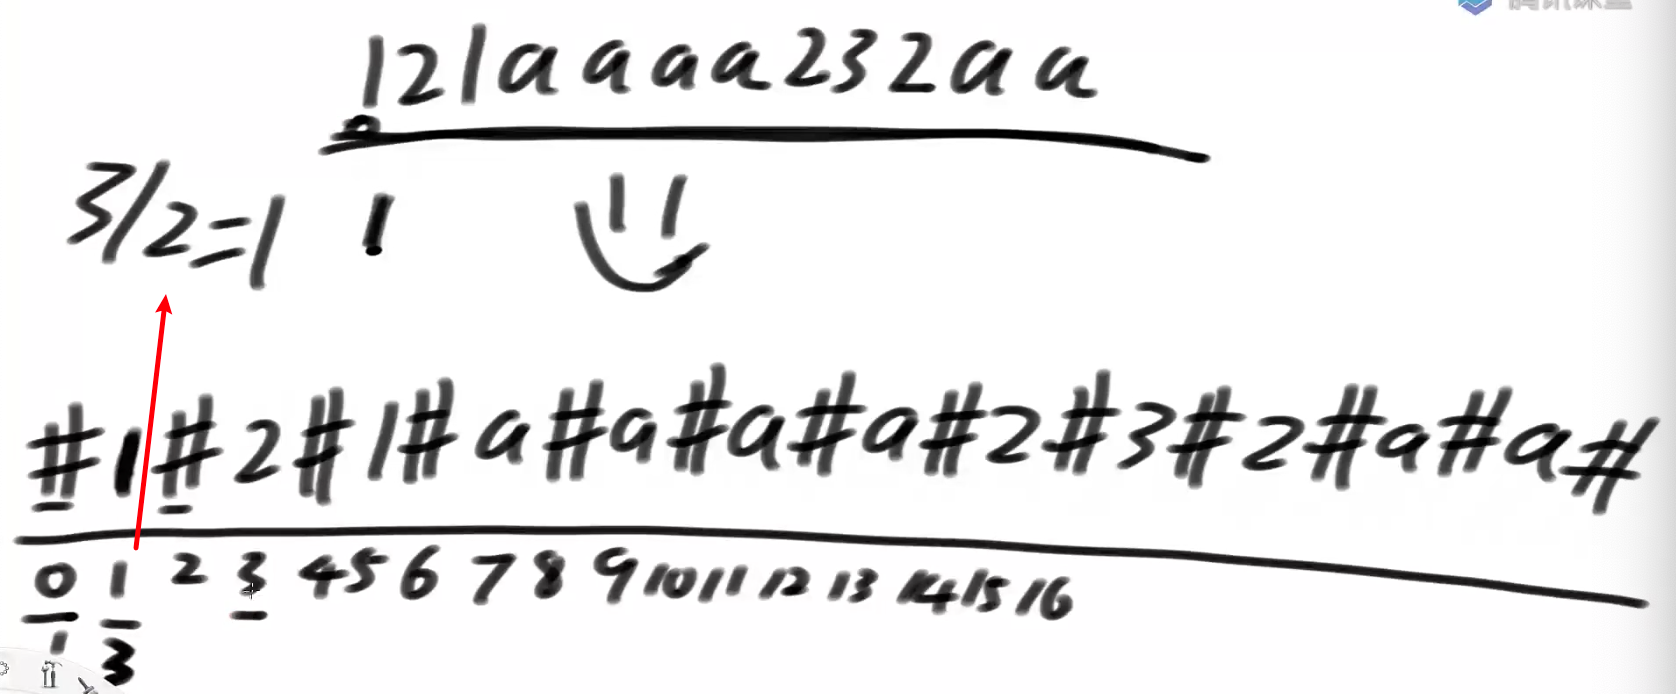 121aaaa232aa
3/2=1 1
#1#2#1#a#a#a#a#2#3#2#a#a#
0 1 2 3 4 5 6 7 8 9 10 11 12 13 14 15 16
1 3